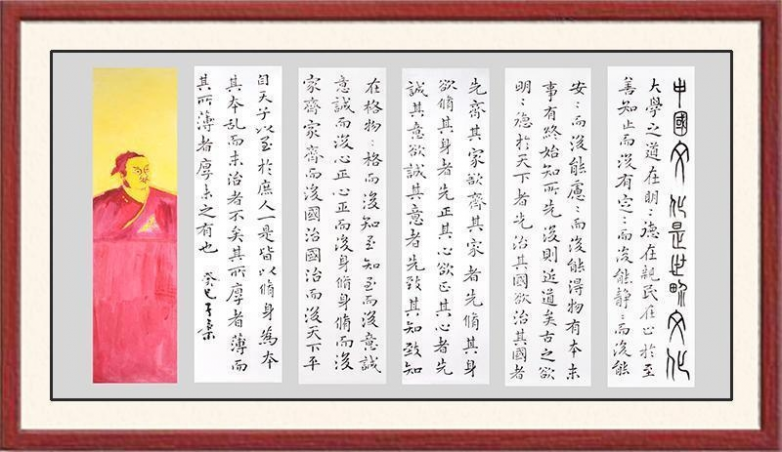 中國文化是世界文化
大學之道在明〻德在親民在止於至
善知止而後有定〻而後能靜〻而後能
安〻而後能慮〻而後能得物有本末
事有終始知所先後則近道矣古之欲
明〻德於天下者先治其國欲治其國者
先齊其家欲齊其家者先脩其身
欲脩其身者先正其心欲正其心者先
誠其意欲誠其意者先致其知致知
在格物〻格而後知至知至而後意誠
意誠而後心正心正而後身脩身脩而後
家齊家齊而後國治國治而後天下平
自天子以至於庶人一是皆以脩身為本
其本亂而末治者不矣其所厚者薄而
其所薄者厚未之有也 癸巳